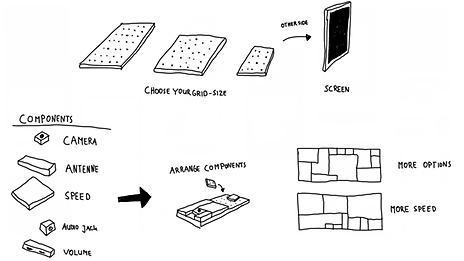 OTHER SIDE
CHOOSE YOUR GRID-SIZE
SCREEN
COMPONENTS
CAMERA
ANTENNE
SPEED
AUDIO JACK
VOLUME
ARRANGE COMPONENTS
MORE OPTIONS
MORE SPEED